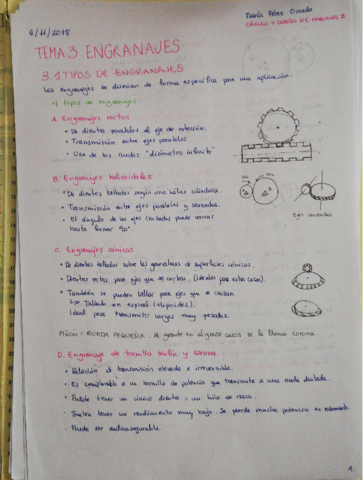 6/11/2018
María Pérez
CÁLCULO Y DISEÑO DE MÁQUINAS II
TEMA 3 ENGRANAJES
3.1 TIPOS DE ENGRANAJES:
Los engranajes se diseñan de forma específica para una aplicación.
4 tipos de engranajes:
A. Engranajes rectos
• De dientes paralelos al eje de rotación.
• Transmisión entre ejes paralelos
• Una de las ruedas "diámetro infinito"
B. Engranajes helicoidales
• De dientes tallados según una hélice cilíndrica.
• Transmisión entre ejes paralelos y cruzados.
• El ángulo de los ejes cruzados puede variar
hasta formar 90°
Ejes cruzados
C. Engranajes cónicos
• De dientes tallados sobre las geometrías de superficies cónicas.
• Dientes rectos para ejes que se cortan. (Ideales para estos casos)
• También se pueden tallar para ejes que se cruzan
Tallado en espiral (hipoides).
Ideal para transmitir cargas muy pesadas.
PIÑÓN: RUEDA PEQUEÑA. Al grande en algunos casos se le llama corona.
D. Engranaje de tornillo sinfín y corona.
• Relación de transmisión elevada e irreversible.
• Es comparable a un tornillo de potencia que transmite a una rueda dentada.
• Puede tener un único diente: un hilo de rosca.
• Suelen tener un rendimiento muy bajo. Se pierde mucha potencia en
• Puede ser
1